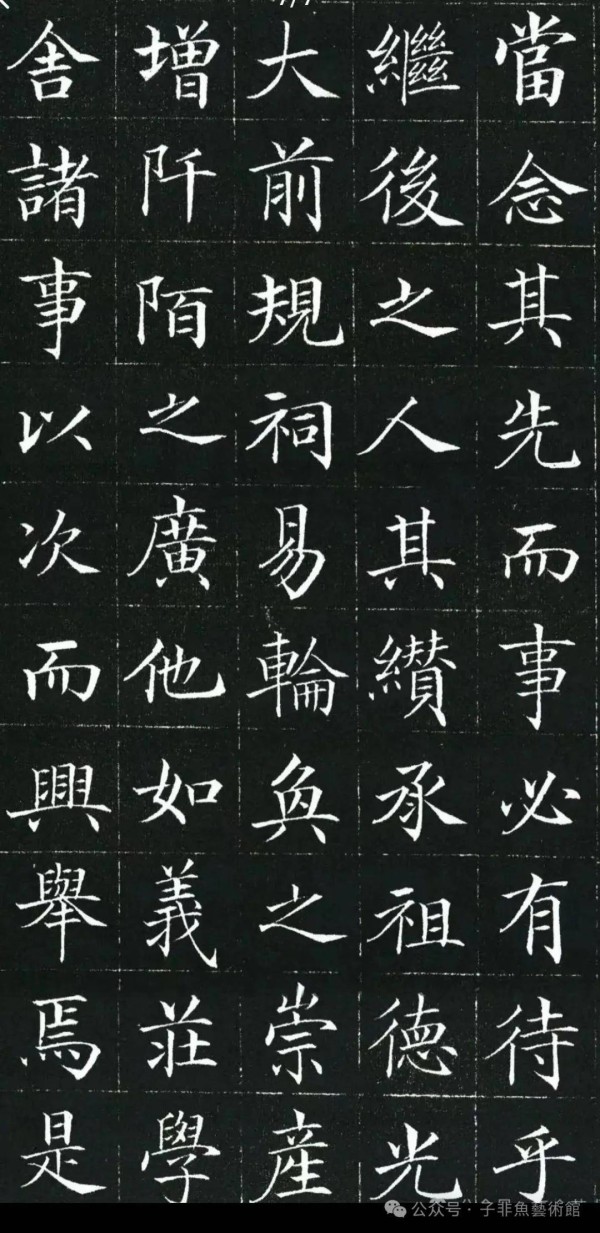 當念其先而事必有待乎
繼後之人其纘承祖德光
大前規祠易輪奐之崇產
增阡陌之廣他如義莊學
舍諸事以次而興舉焉是
7/7
公众号·子菲魚藝術館